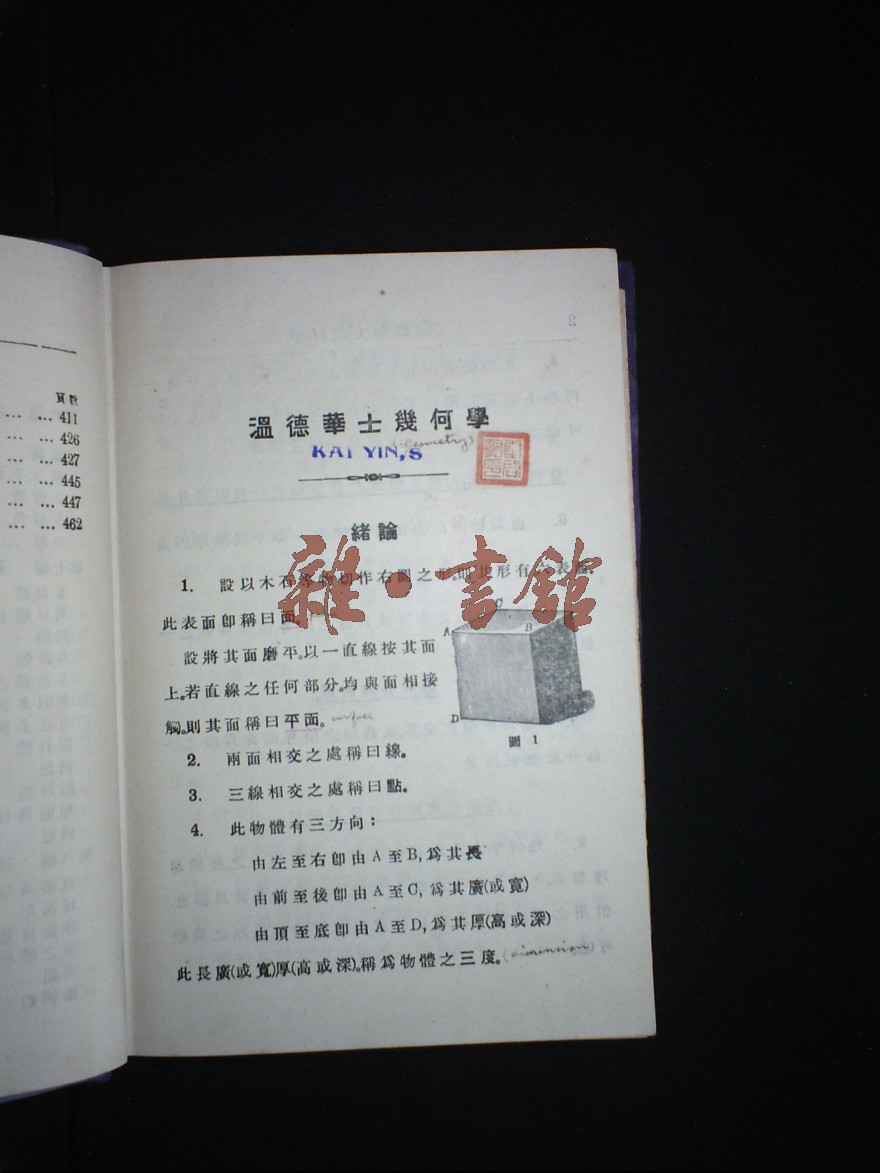 頁數
... ... 411
... ... 426
... ... 427
... ... 445
... ... 447
... ... 462
溫德華士幾何學
(Geometry)
KAI YIN,S
緒論
雜·書館
1. 設以木石等物切作右圖之形,則其形有六表面。
此表面卽稱曰面。
設將其面磨平。以一直線按其面
上。若直線之任何部分。均與面相接
觸。則其面稱曰平面。surface
A B C D
圖 1
2. 兩面相交之處稱曰線。
3. 三線相交之處稱曰點。
4. 此物體有三方向:
由左至右卽由A至B,爲其長
由前至後卽由A至C,爲其廣(或寬)
由頂至底卽由A至D,爲其厚(高或深)
此長廣(或寬)厚(高或深)。稱爲物體之三度。(dimension)